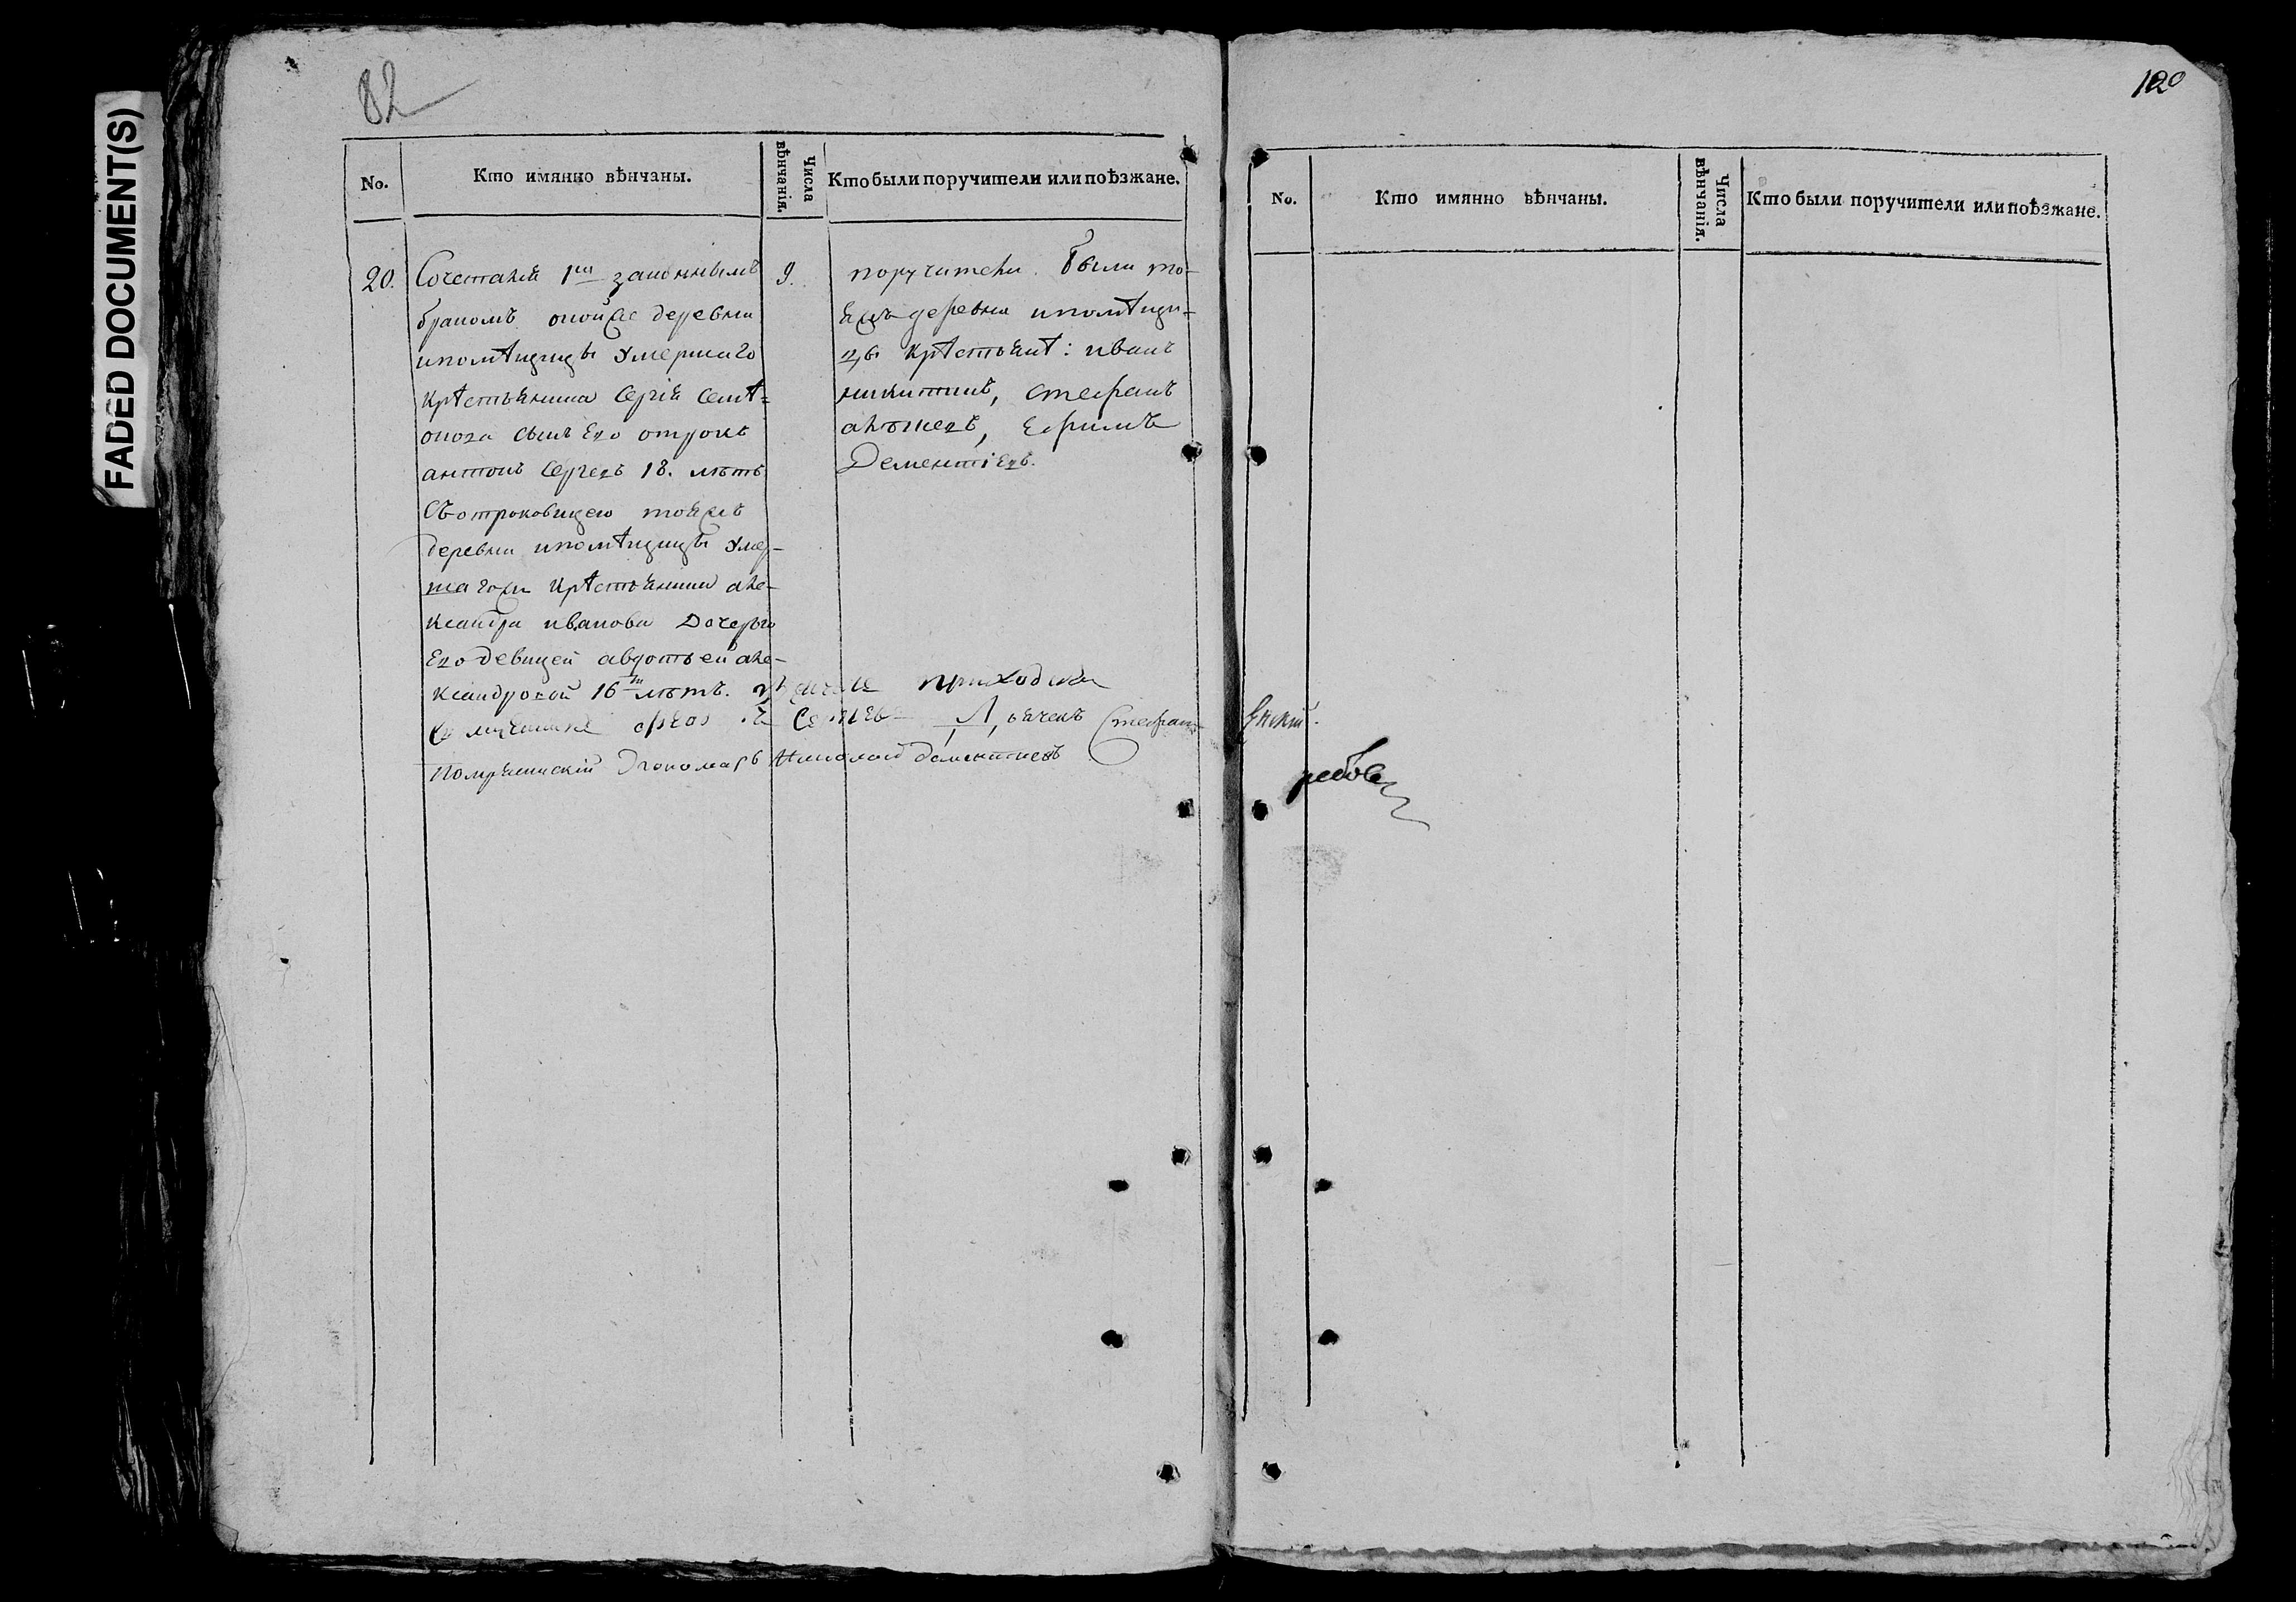 FADED DOCUMENT(S)
82
No.
Кто имянно вѣнчаны.
Числа
вѣнчанія.
Кто были поручители или поѣзжане.
20.
Сочетанъ 1мъ законнымъ
бракомъ оной же деревни
ипомѣщицы умершаго
крѣстьянина Сергія Семѣ-
онова сынъ Его отрокъ
антонъ Сергеевъ 18. лѣтъ
Съ отроковицею тояжъ
деревни ипомѣщицы умер-
шагожъ крѣстьянина але-
ксандра иванова Дочерью
Его девицей авдотьей але-
ксандровой 16ти лѣтъ.
9.
поручители были то-
яжъ деревни ипомѣщи-
цы крѣстьянѣ: иванъ
никитинъ, стефанъ
Ефимъ
Дементіевъ.
приходская
Сергіев
Стефан
Пономарь Николай Дементиевъ
120
No.
Кто имянно вѣнчаны.
Числа
вѣнчанія.
Кто были поручители или поѣзжане.